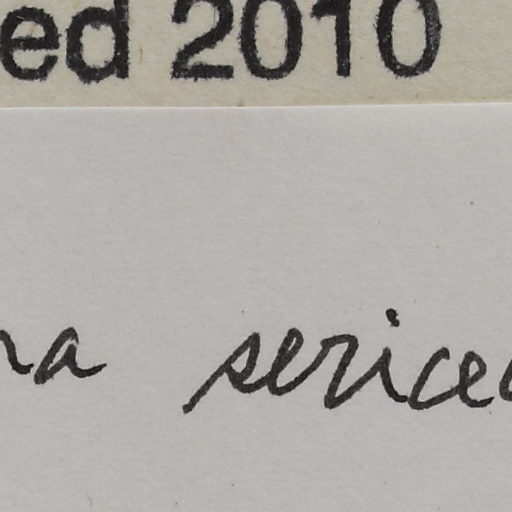 ed 2010
na serice